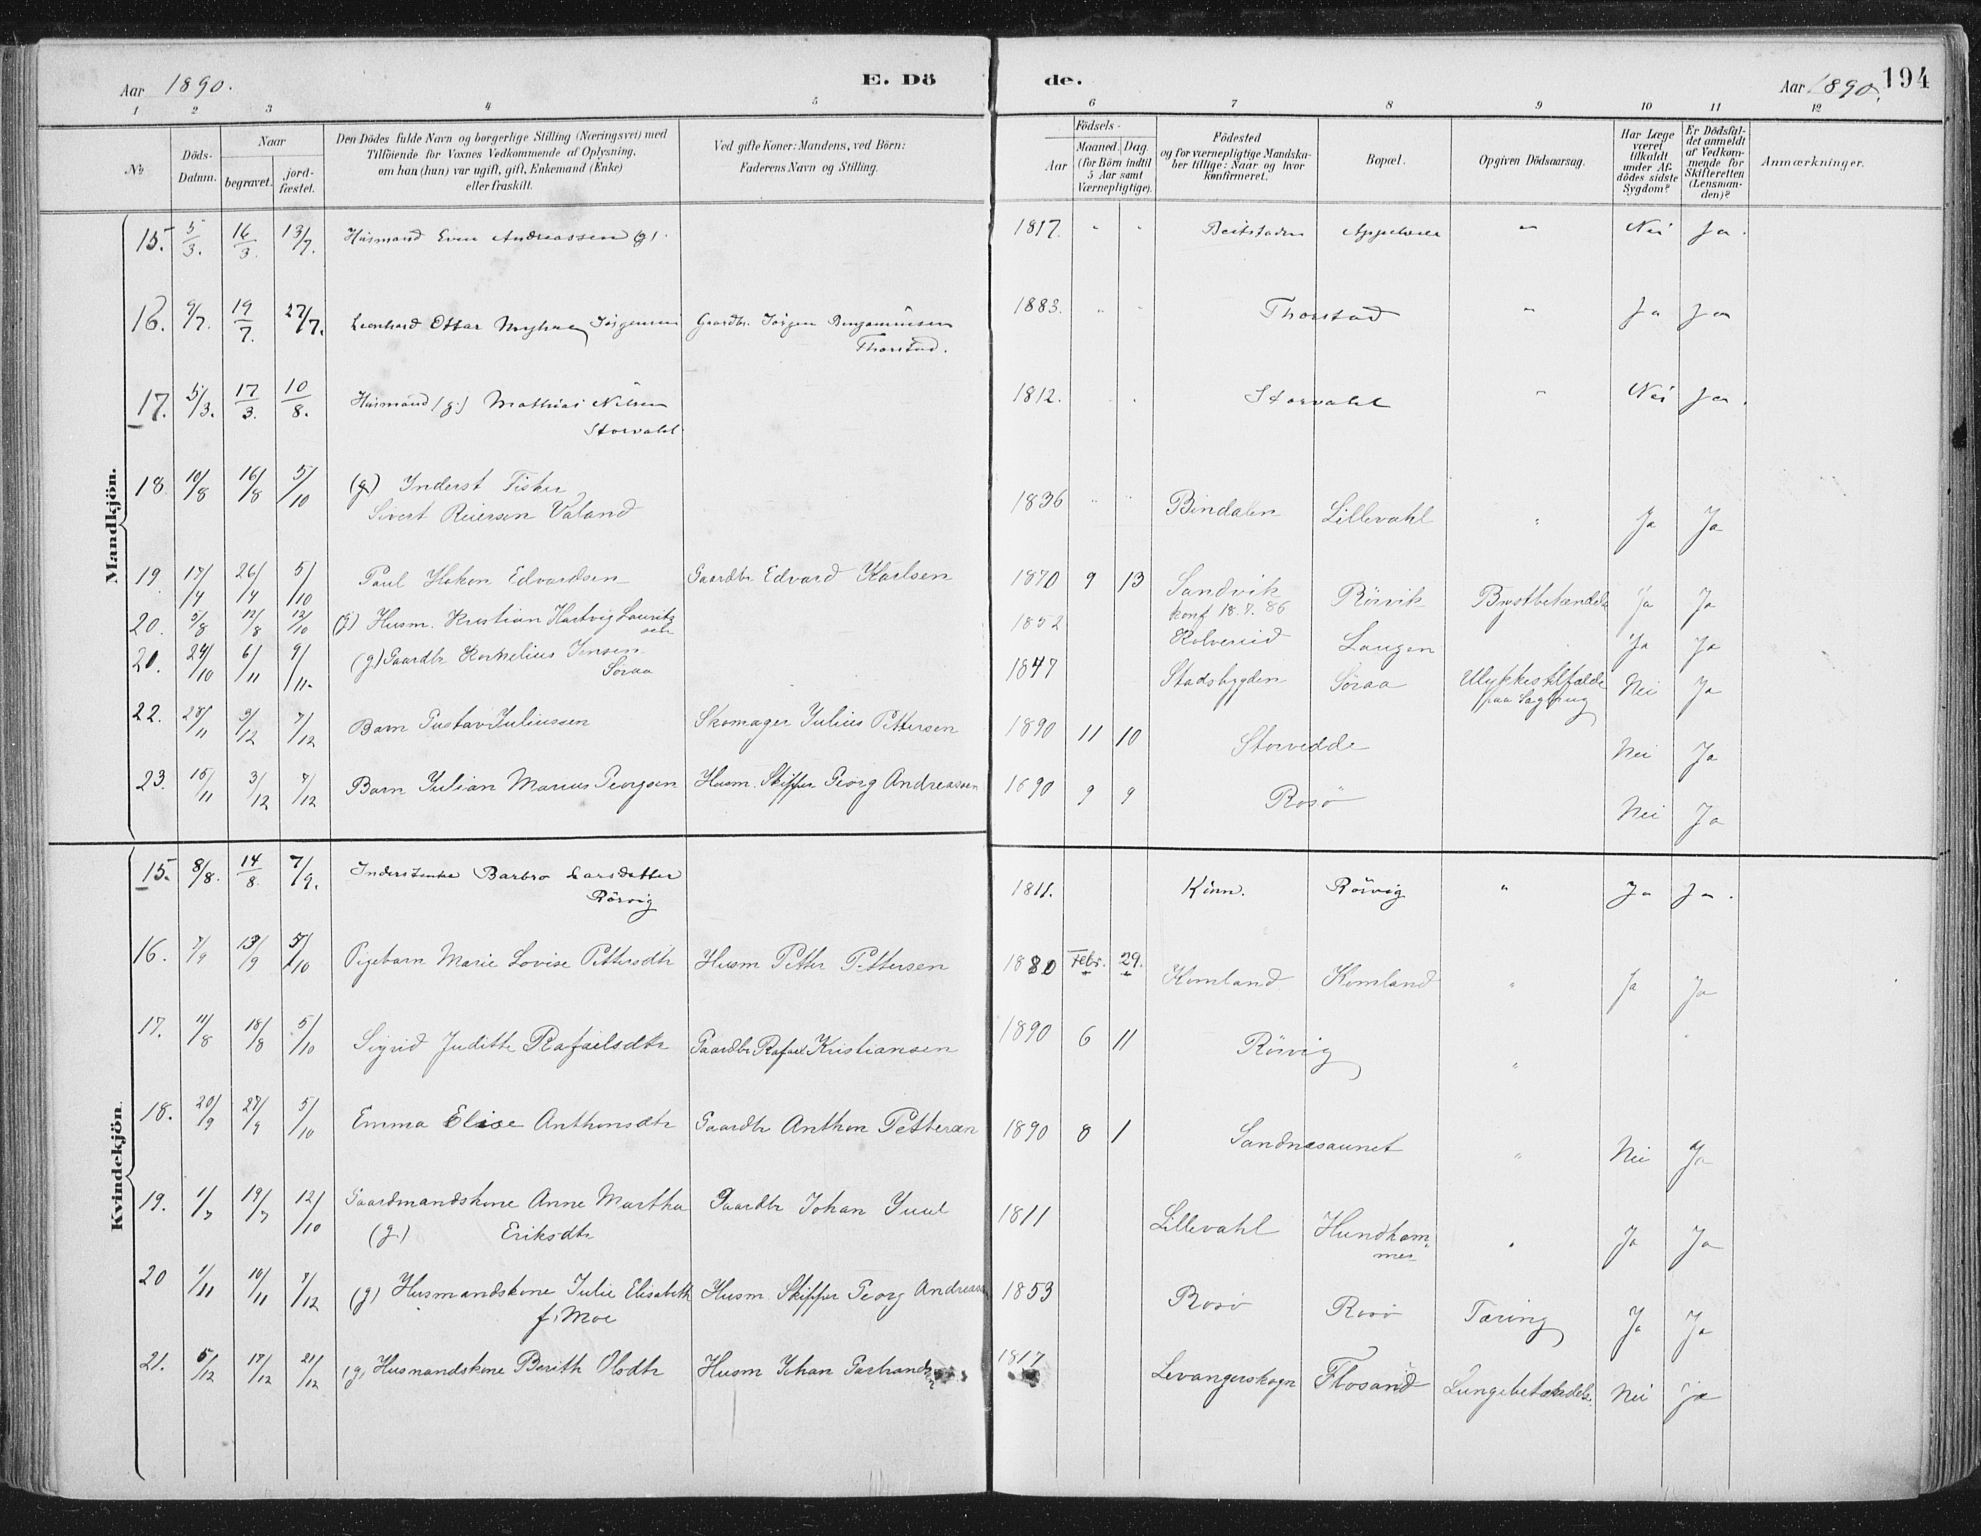 Aar 1890. E. Dö de. Aar 1890. 194
1 2 3 4 5 6 7 8 9 10 11 12
No. Döds-Datum. Naar begravet. jord-fæstet. Den Dödes fulde Navn og borgerlige Stilling (Næringsvei) med Tilföiende for Voxnes Vedkommende af Oplysning, om han (hun) var ugift, gift, Enkemand (Enke) eller fraskilt. Ved gifte Koner: Mandens, ved Börn: Faderens Navn og Stilling. Födsels- Aar Maaned. Dag. (for Börn indtil 5 Aar samt Værnepligtige). Födested og for værnepligtige Mandskaber tillige: Naar og hvor konfirmeret. Bopæl. Opgiven Dödsaarsag. Har Læge været tilkaldt under Afdödes sidste Sygdom? Er Dödsfaldet anmeldt af Vedkommende for Skifteretten (Lensmanden)? Anmærkninger.
Mandkjön.
15. 5/3. 16/3. 13/7. Husmand Even Andreassen (g). 1817. " " Beitstaden " Nei Ja.
16. 9/7. 19/7. 27/7. Leonhard Ottar Myhre Jörgensen Gaardbr. Jörgen Benjaminsen 1883. " " Thorstad " Ja Ja
Thorstad.
17. 5/3. 17/3. 10/8. Husmand (g.) Mathias Nilsen 1812. " " Storvahl " Nei Ja.
Storvahl.
18. 10/8 16/8 5/10 (g) Inderst Fisker
Sivert Reiersen Valand 1836 " " Bindalen Lillevahl " Ja Ja
19. 17/4 26/4 5/10 Paul Hakon Edvardsen Gaardbr Edvard Karlsen 1870 9 13 Sandvik Rörvik Brystbetændelse Ja Ja
konf 18.7.86
20. 5/8 12/8 12/10 (g) Husm. Kristian Hartvig Lauritz 1852 Kolvereid Laugen " Ja Ja
sen
20. 24/10 6/11 9/11. (g) Gaardbr Kornelius Jensen 1847 Stadsbygden Söraa Ulykkestilfælde Nei Ja
Söraa paa Sagbrug
22. 28/11 3/12 7/12 Barn Gustav Juliussen Skomager Julius Pettersen 1890 11 10 Storvedde Nei Ja
23. 15/11 3/12 7/12 Barn Julian Marius Georgsen Husm. Skipper Georg Andreassen 1890 9 9 Rosö Nei Ja
Kvindekjön.
15. 8/8. 14/8. 7/9. Inderstenke Barbro Larsdatter 1811. Kinn. Rörvig " Ja Ja.
Rörvig
16. 7/9 13/9 5/10 Pigebarn Marie Lovise Pettersdtr Husm Petter Pettersen 1880 Febr. 29. Komland Komland " Ja Ja
17. 11/8 18/8 5/10 Sigrid Judithe Rafaelsdtr Gaardbr Rafael Kristiansen 1890 6 11 Rörvig "
18. 20/9 27/9 5/10 Emma Elise Anthonsdtr Gaardbr Anthon Pettersen 1890 8 1 Sandnesaunet " Nei Ja
19. 1/7 19/7 12/10 Gaardmandskone Anne Martha Gaardbr Johan Juul 1811 Lillevahl Hundham- " Ja Ja
(g.) Eriksdtr mer
20 1/11 10/11 7/12 (g) Husmandskone Julie Elisabeth Husm. Skipper Georg Andreassen 1853 Rosö Rosö Tæring Ja Ja
f. Moe
21. 5/12 17/12 21/12 (g) Husmandskone Berith Olsdtr Husm Johan 1817 Levangerskogn Flosand Lungebetændelse. Nei ja